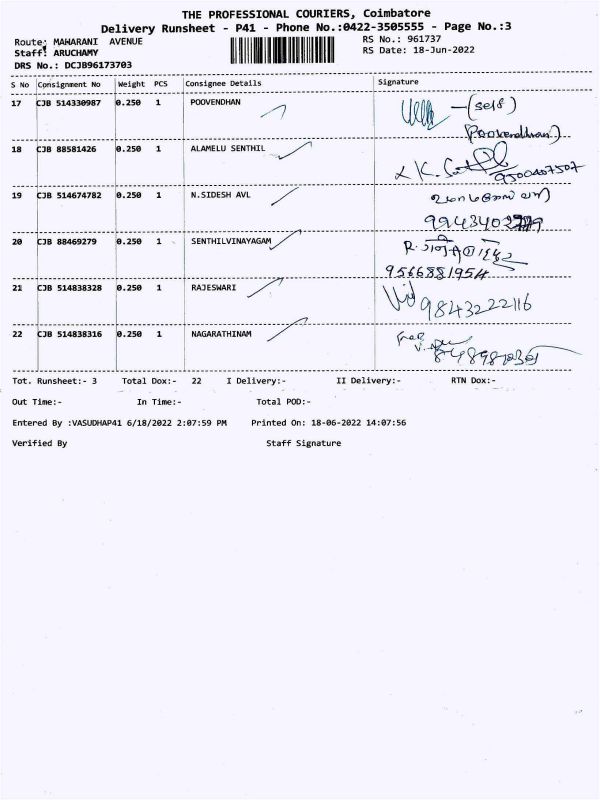 THE PROFESSIONAL COURIERS, Coimbatore
Delivery Runsheet - P41 - Phone No.:0422-3505555 - Page No.:3
Route: MAHARANI AVENUE
RS No.: 961737
Staff: ARUCHAMY
RS Date: 18-Jun-2022
DRS No.: DCJB96173703
S No Consignment No Weight PCS Consignee Details Signature
17 CJB 514330987 0.250 1 POOVENDHAN (self)
(Poovendhan)
18 CJB 88581426 0.250 1 ALAMELU SENTHIL
9500407507
19 CJB 514674782 0.250 1 N.SIDESH AVL
20 CJB 88469279 0.250 1 SENTHILVINAYAGAM
9566881954
21 CJB 514838328 0.250 1 RAJESWARI 9843222116
22 CJB 514838316 0.250 1 NAGARATHINAM
Tot. Runsheet:- 3 Total Dox:- 22 I Delivery:- II Delivery:- RTN Dox:-
Out Time:- In Time:- Total POD:-
Entered By :VASUDHAP41 6/18/2022 2:07:59 PM Printed On: 18-06-2022 14:07:56
Verified By Staff Signature